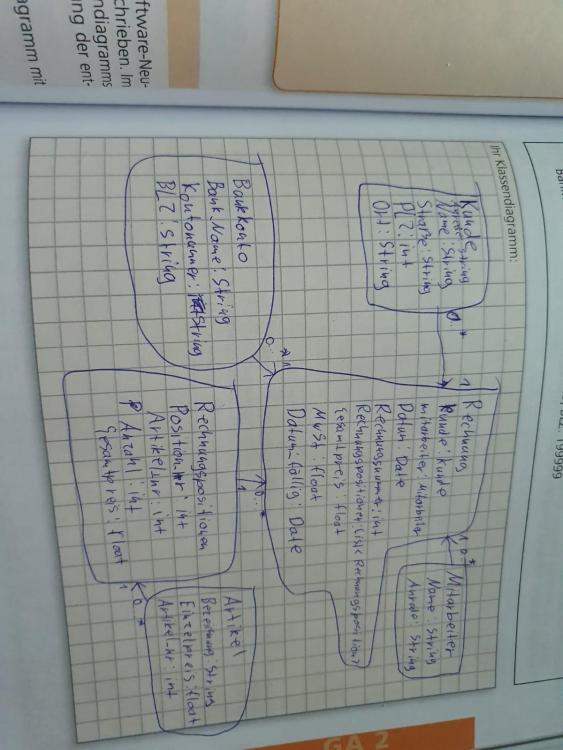 ftware-Neu-
chrieben. Im
ndiagramms
ung der ent-
agramm mit
Ihr Klassendiagramm:
Kunde
Anrede: String
Name: String
Straße: String
PLZ: int
Ort: String
0..*
1
Rechnung
Kunde: Kunde
mitarbeiter: Mitarbeiter
Datum: Date
Rechnungsnummer: int
Rechnungspositionen: List<Rechnungsposition>
Gesamtpreis: float
MwSt: float
Datum: fällig: Date
1 0..*
Mitarbeiter
Name: String
Anrede: String
Bankkonto
Bank Name: String
Kontonummer: String
BLZ: String
0..* 1
0..*
1
Rechnungspositionen
Position.nr: int
Artikel.nr: int
Anzahl: int
Gesamtpreis: float
1
0..*
Artikel
Bezeichnung String
Einzelpreis: float
Artikel-nr: int
199999
GA 2